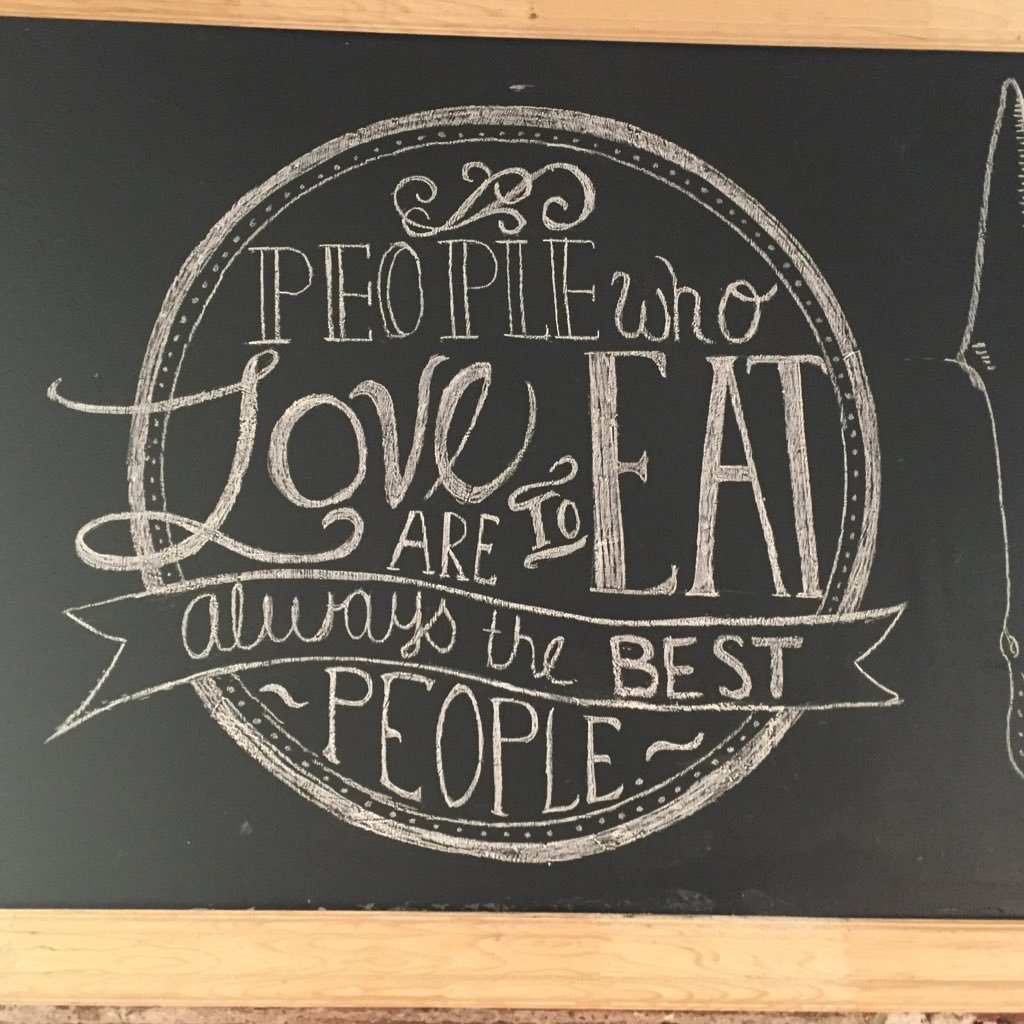 PEOPLE who
Love TO EAT
ARE
always the BEST
~PEOPLE.~